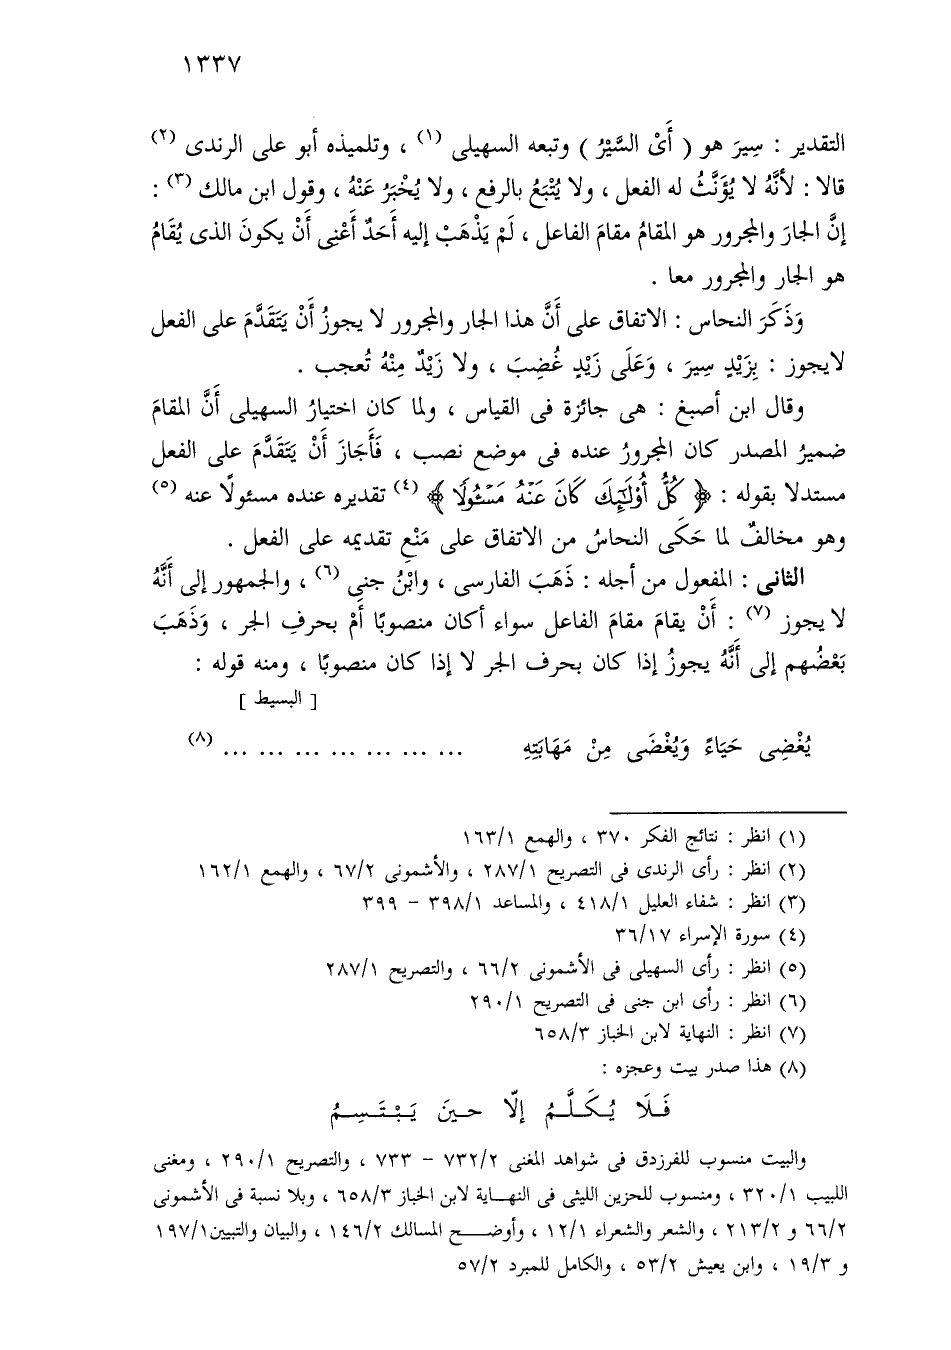 ١٣٣٧
التقدير : سِيرَ هو ( أَىْ السَّيْرُ ) وتبعه السهيلى (١) ، وتلميذه أبو على الرندى (٢)
قالا : لأنَّهُ لا يُؤَنَّثُ له الفعل ، ولا يُتْبَعُ بالرفع ، ولا يُخْبَرُ عَنْهُ ، وقول ابن مالك (٣) :
إنَّ الجارَ والمجرور هو المقامُ مقامَ الفاعل ، لَمْ يَذْهَبْ إليه أَحَدٌ أَعْنِى أَنْ يكونَ الذى يُقَامُ
هو الجار والمجرور معا .
وَذَكَرَ النحاس : الاتفاق على أَنَّ هذا الجار والمجرور لا يجوزُ أَنْ يَتَقَدَّمَ على الفعل
لايجوز : بِزَيْدٍ سِيرَ ، وَعَلَى زَيْدٍ غُضِبَ ، ولا زَيْدٌ مِنْهُ تُعجب .
وقال ابن أصبغ : هى جائزة فى القياس ، ولما كان اختيارُ السهيلى أَنَّ المقامَ
ضميرُ المصدر كان المجرورُ عنده فى موضع نصب ، فَأَجَازَ أَنْ يَتَقَدَّمَ على الفعل
مستدلا بقوله : ﴿ كُلُّ أُوْلَـٰٓئِكَ كَانَ عَنْهُ مَسْئُولًا ﴾ (٤) تقديره عنده مسئولًا عنه (٥)
وهو مخالفٌ لما حَكَى النحاسُ من الاتفاق على مَنْعِ تقديمه على الفعل .
الثانى : المفعول من أجله : ذَهَبَ الفارسى ، وابْنُ جنى (٦) ، والجمهور إلى أَنَّهُ
لا يجوز (٧) : أَنْ يقامَ مقامَ الفاعل سواء أكان منصوبًا أمْ بحرفِ الجر ، وَذَهَبَ
بَعْضُهم إلى أَنَّهُ يجوزُ إذا كان بحرف الجر لا إذا كان منصوبًا ، ومنه قوله :
[ البسيط ]
يُغْضِى حَيَاءً وَيُغْضَى مِنْ مَهَابَتِهِ ... ... ... ... ... ... ... (٨)
(١) انظر : نتائج الفكر ٣٧٠ ، والهمع ١٦٣/١
(٢) انظر : رأى الرندى فى التصريح ٢٨٧/١ ، والأشمونى ٦٧/٢ ، والهمع ١٦٢/١
(٣) انظر : شفاء العليل ٤١٨/١ ، والمساعد ٣٩٨/١ – ٣٩٩
(٤) سورة الإسراء ٣٦/١٧
(٥) انظر : رأى السهيلى فى الأشمونى ٦٦/٢ ، والتصريح ٢٨٧/١
(٦) انظر : رأى ابن جنى فى التصريح ٢٩٠/١
(٧) انظر : النهاية لابن الخباز ٦٥٨/٣
(٨) هذا صدر بيت وعجزه :
فَـلَا يُـكَـلَّـمُ إلّا حـينَ يَـبْـتَـسِـمُ
والبيت منسوب للفرزدق فى شواهد المغنى ٧٣٢/٢ – ٧٣٣ ، والتصريح ٢٩٠/١ ، ومغنى
اللبيب ٣٢٠/١ ، ومنسوب للحزين الليثى فى النهـاية لابن الخباز ٦٥٨/٣ ، وبلا نسبة فى الأشمونى
٦٦/٢ و ٢١٣/٢ ، والشعر والشعراء ١٢/١ ، وأوضـح المسالك ١٤٦/٢ ، والبيان والتبيين١٩٧/١
و ١٩/٣ ، وابن يعيش ٥٣/٢ ، والكامل للمبرد ٥٧/٢